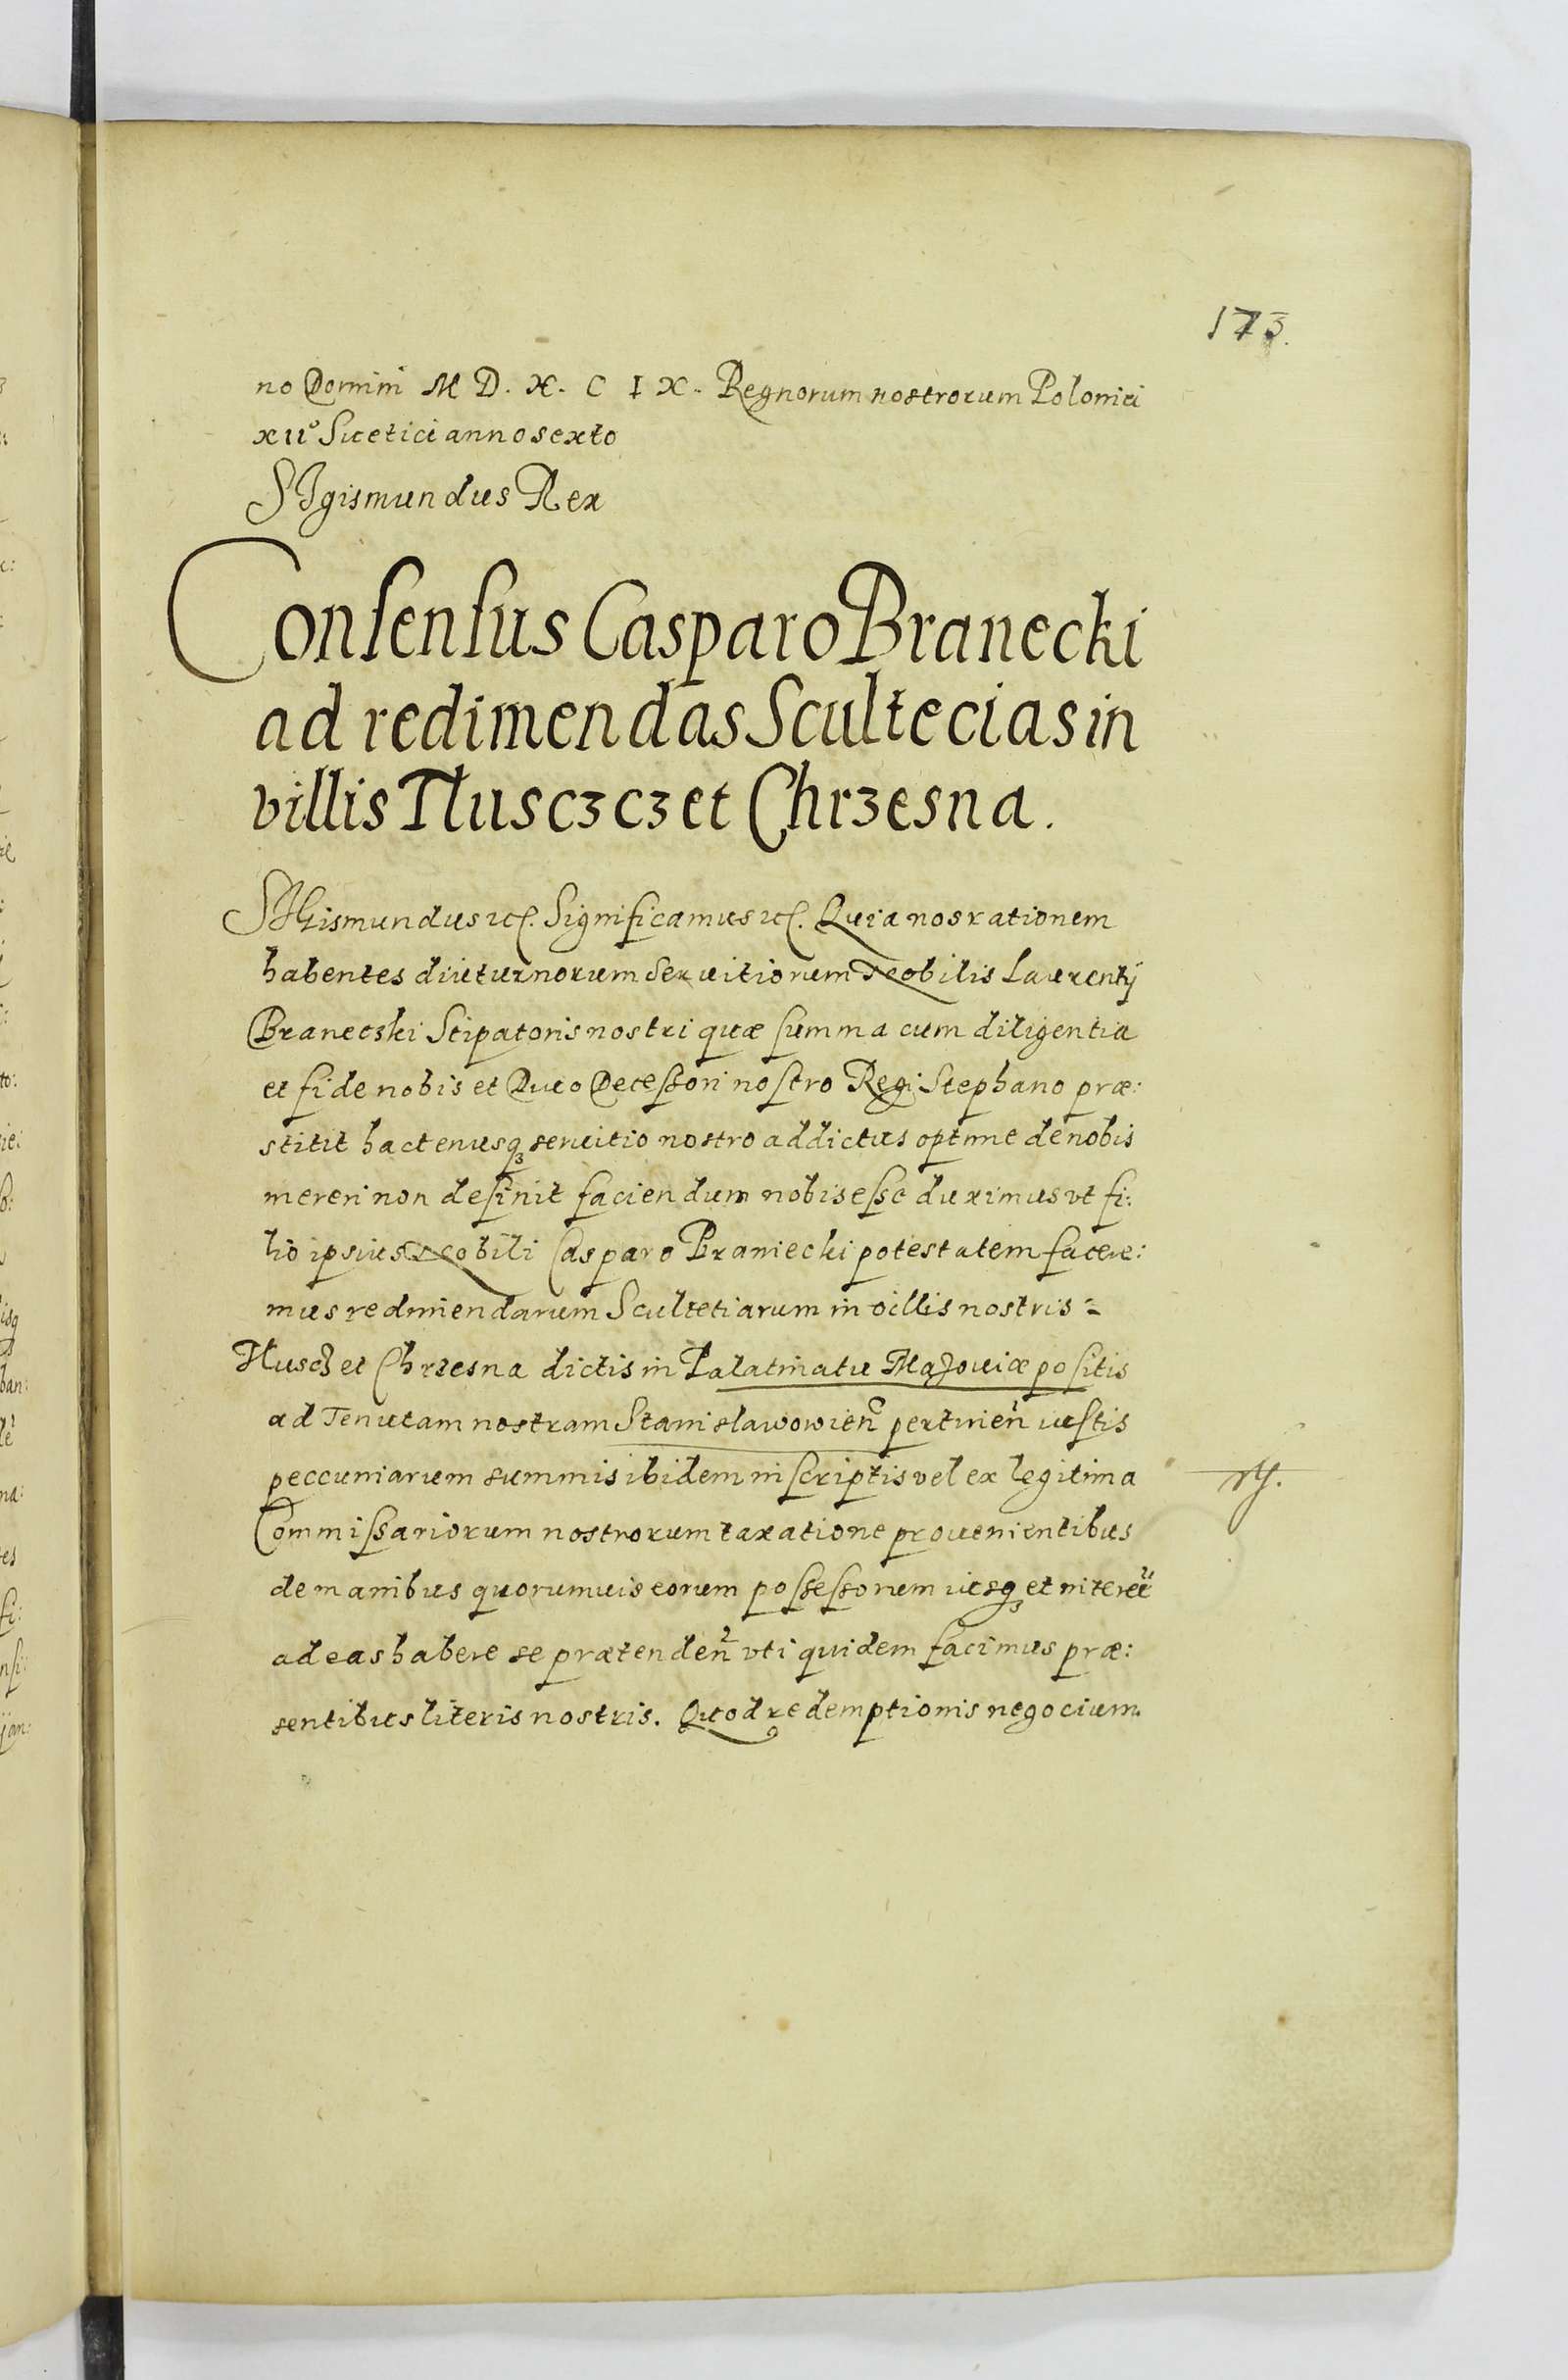 173.
no Domini M D. X. C I X. Regnorum nostrorum Polonici
XII° Suetici anno sexto
SIgismundus Rex
Consensus Casparo Branecki
ad redimendas Scultecias in
villis Tlusczcz et Chrzesna.
SIGismundus etc. Significamus etc. Quia nos rationem
habentes diuturnorum seruitiorum Nobilis Laurentij
Braneczki Stipatoris nostri quæ summa cum diligentia
et fide nobis et Diuo Decessori nostro Regi Stephano præ:
stitit hactenusq3 seruitio nostro addictus optime de nobis
mereri non desinit faciendum nobis esse duximus vt fi:
lio ipsius Nobili Casparo Braniecki potestatem facere:
mus redimendarum Scultetiarum in villis nostris
Tluscz et Chrzesna dictis in Palatinatu Mazouiæ positis
ad Tenutam nostram Stanislawowien pertinen iustis
peccuniarum summis ibidem inscriptis vel ex legitima
Commissariorum nostrorum taxatione prouenientibus
de manibus quorumuis eorum possessorum iusq3 et interee
ad eas habere se prætenden vti quidem facimus præ:
sentibus literis nostris. Quod redemptionis negocium